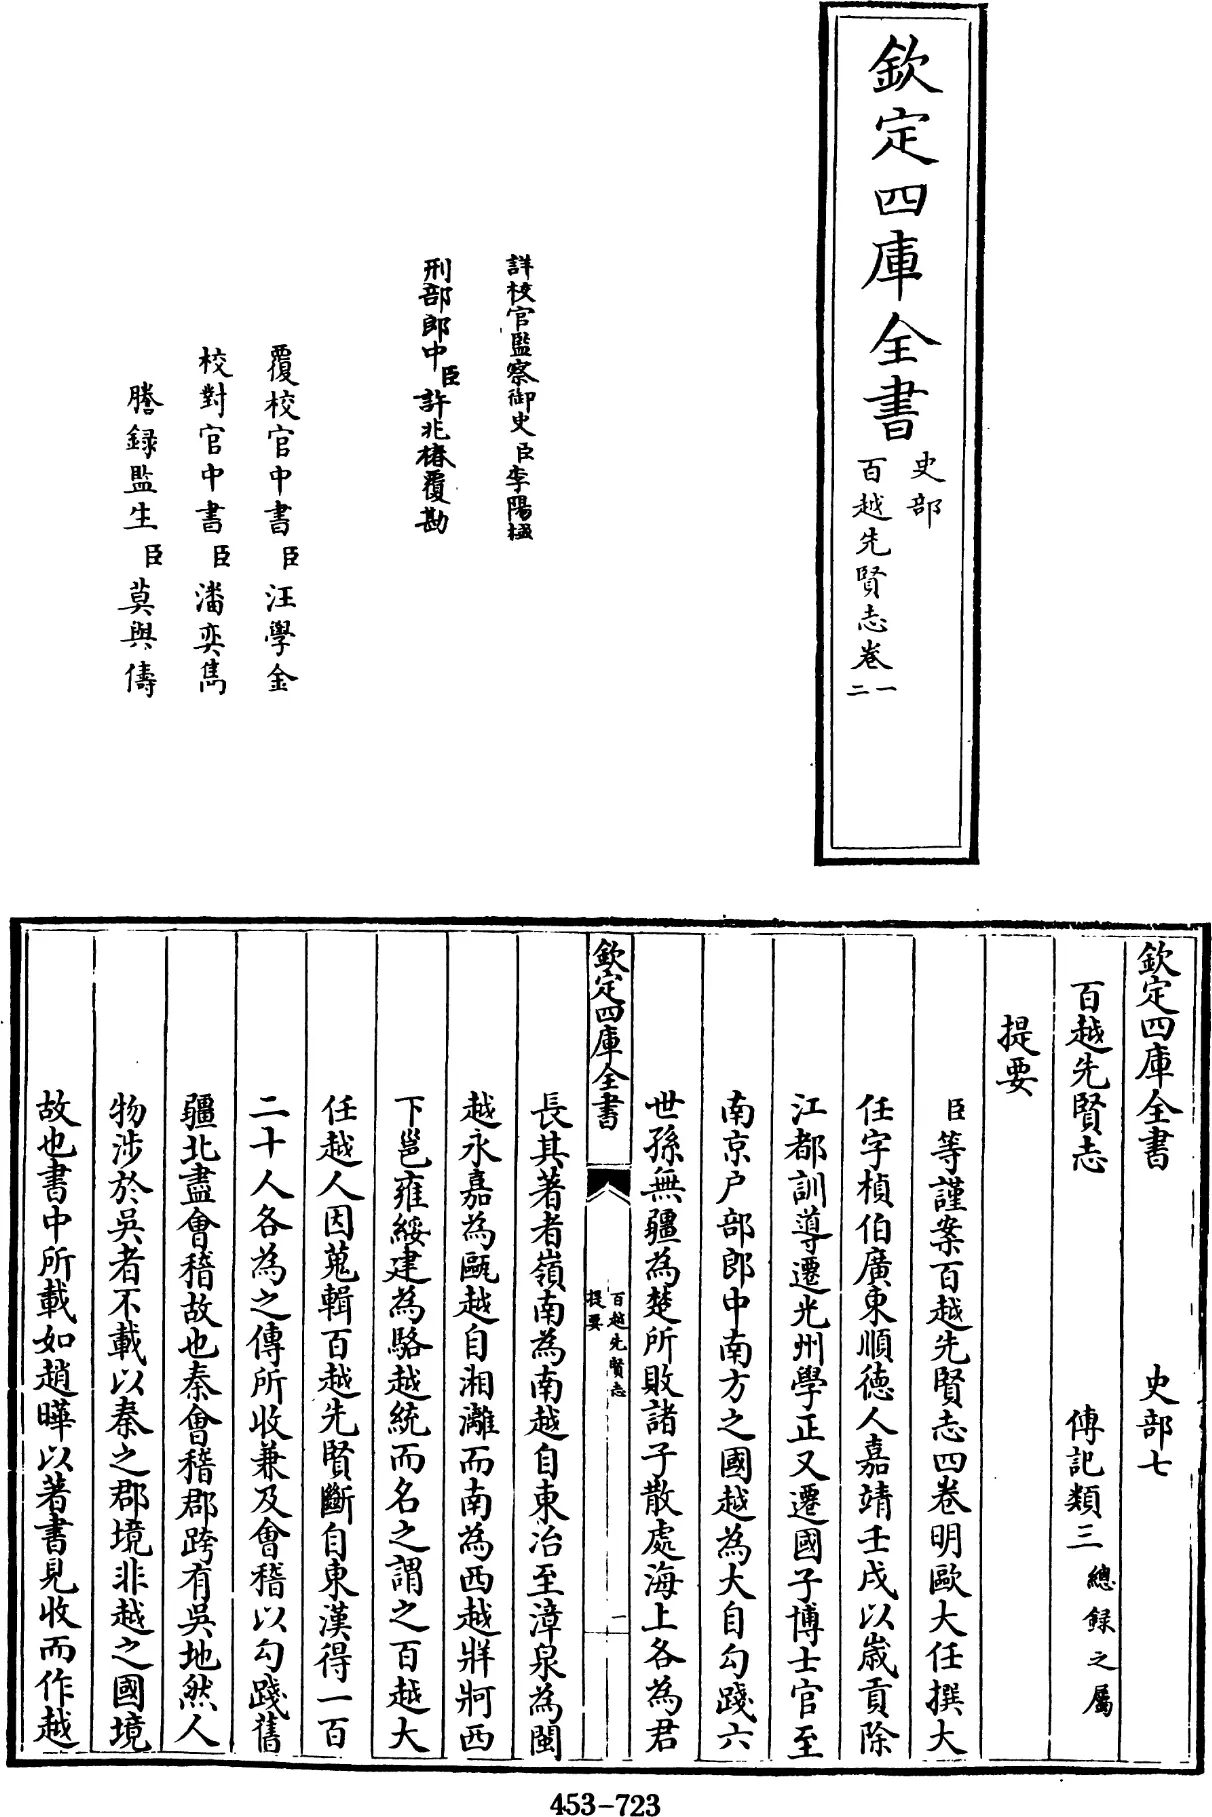 欽定四庫全書
史部
百越先賢志卷一
二
詳校官監察御史臣李陽棫
刑部郎中臣許兆椿覆勘
覆校官中書臣汪學金
校對官中書臣潘奕雋
謄錄監生臣莫與儔
欽定四庫全書 史部七
百越先賢志 傳記類三總錄之屬
提要
臣等謹案百越先賢志四卷明歐大任撰大
任字楨伯廣東順德人嘉靖壬戌以歲貢除
江都訓導遷光州學正又遷國子博士官至
南京户部郎中南方之國越為大自勾踐六
世孫無疆為楚所敗諸子散處海上各為君
欽定四庫全書
百越先賢志
提要
一
長其著者嶺南為南越自東冶至漳泉為閩
越永嘉為甌越自湘灕而南為西越牂牁西
下邕雍綏建為駱越統而名之謂之百越大
任越人因蒐輯百越先賢斷自東漢得一百
二十人各為之傳所收兼及會稽以勾踐舊
疆北盡會稽故也秦會稽郡跨有吳地然人
物涉於吳者不載以秦之郡境非越之國境
故也書中所載如趙曄以著書見收而作越
453-723